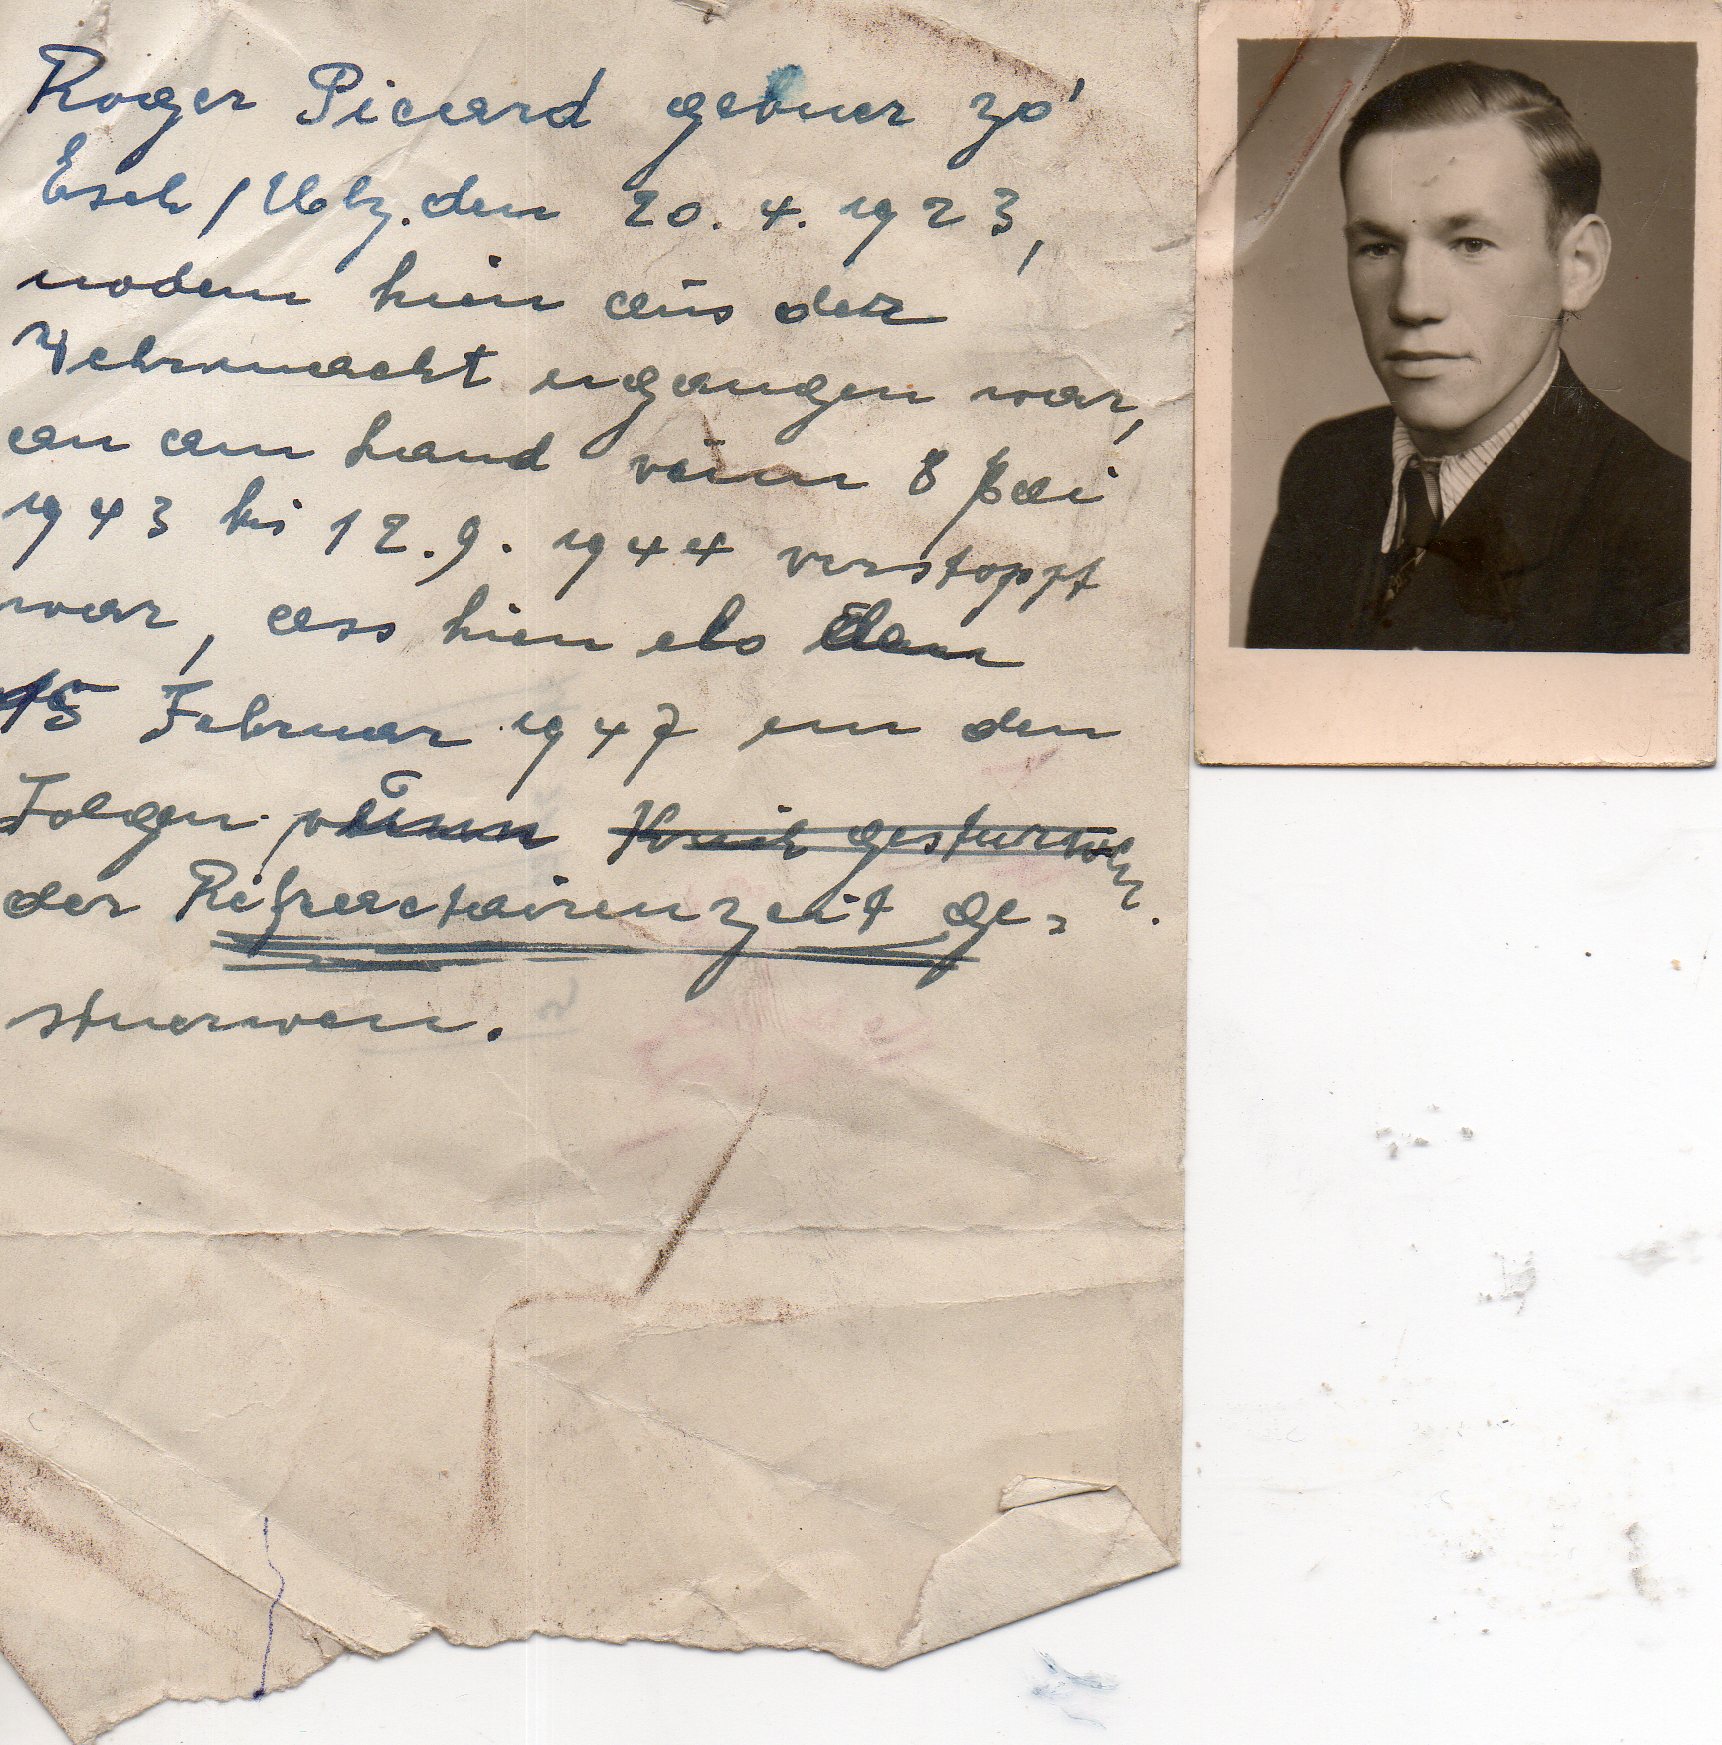 Roger Piccard gebuer zo'
Esch / Uelz. den 20. 4. 1923,
nodem hien aus der
Wehrmacht ergangen war,
an am Land vum 8 Mai
1943 bis 12. 9. 1944 verstoppt
war, ass hien elo den
15 Februar 1947 un den
Folgen vun Krich gestuerwen.
der Refractairenzeit ge=
stuerwen.